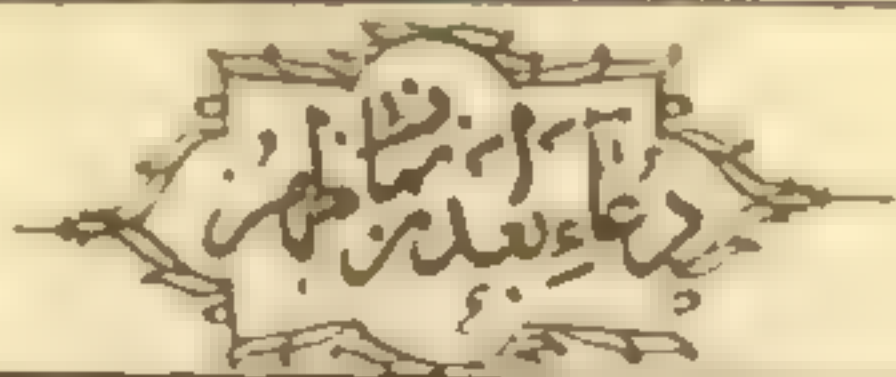 دعاء بعد از نماز ظهر